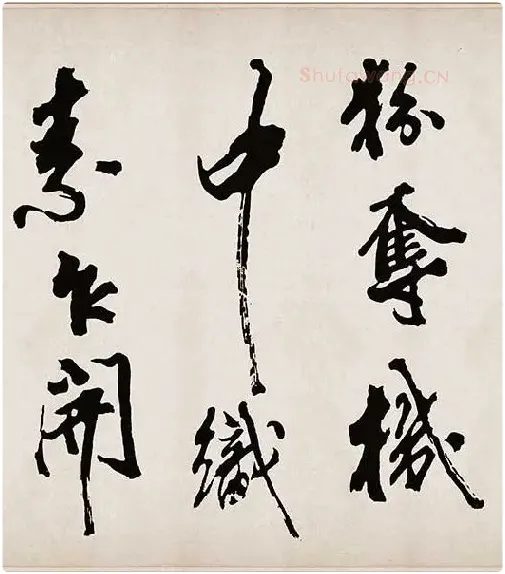 Shufawang.CN
粉奪機
中織
素乍開